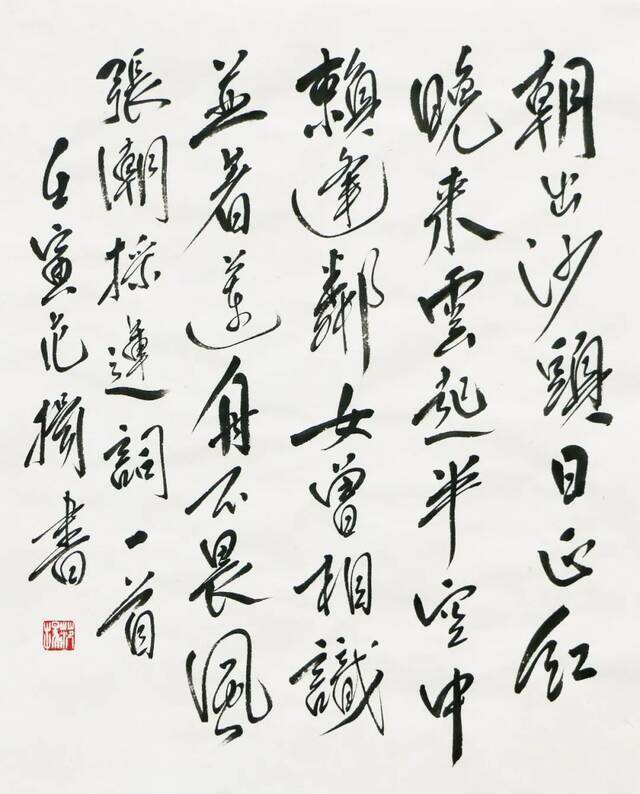 朝出沙頭日正紅
晚来雲起半空中
賴逢鄰女曾相識
並著蓮舟不畏風
張潮採蓮詞一首
壬寅范揚書
范揚